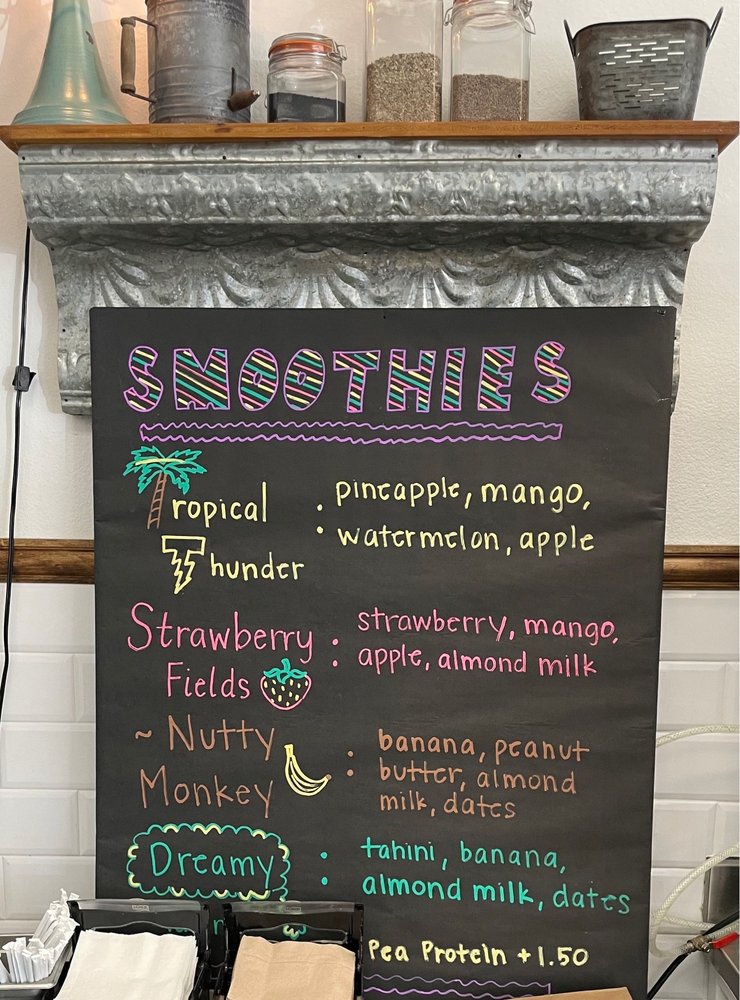 SMOOTHIES
Tropical : pineapple, mango,
watermelon, apple
Thunder
Strawberry : strawberry, mango,
Fields apple, almond milk
~ Nutty : banana, peanut
Monkey butter, almond
milk, dates
Dreamy : tahini, banana,
almond milk, dates
Pea Protein +1.50